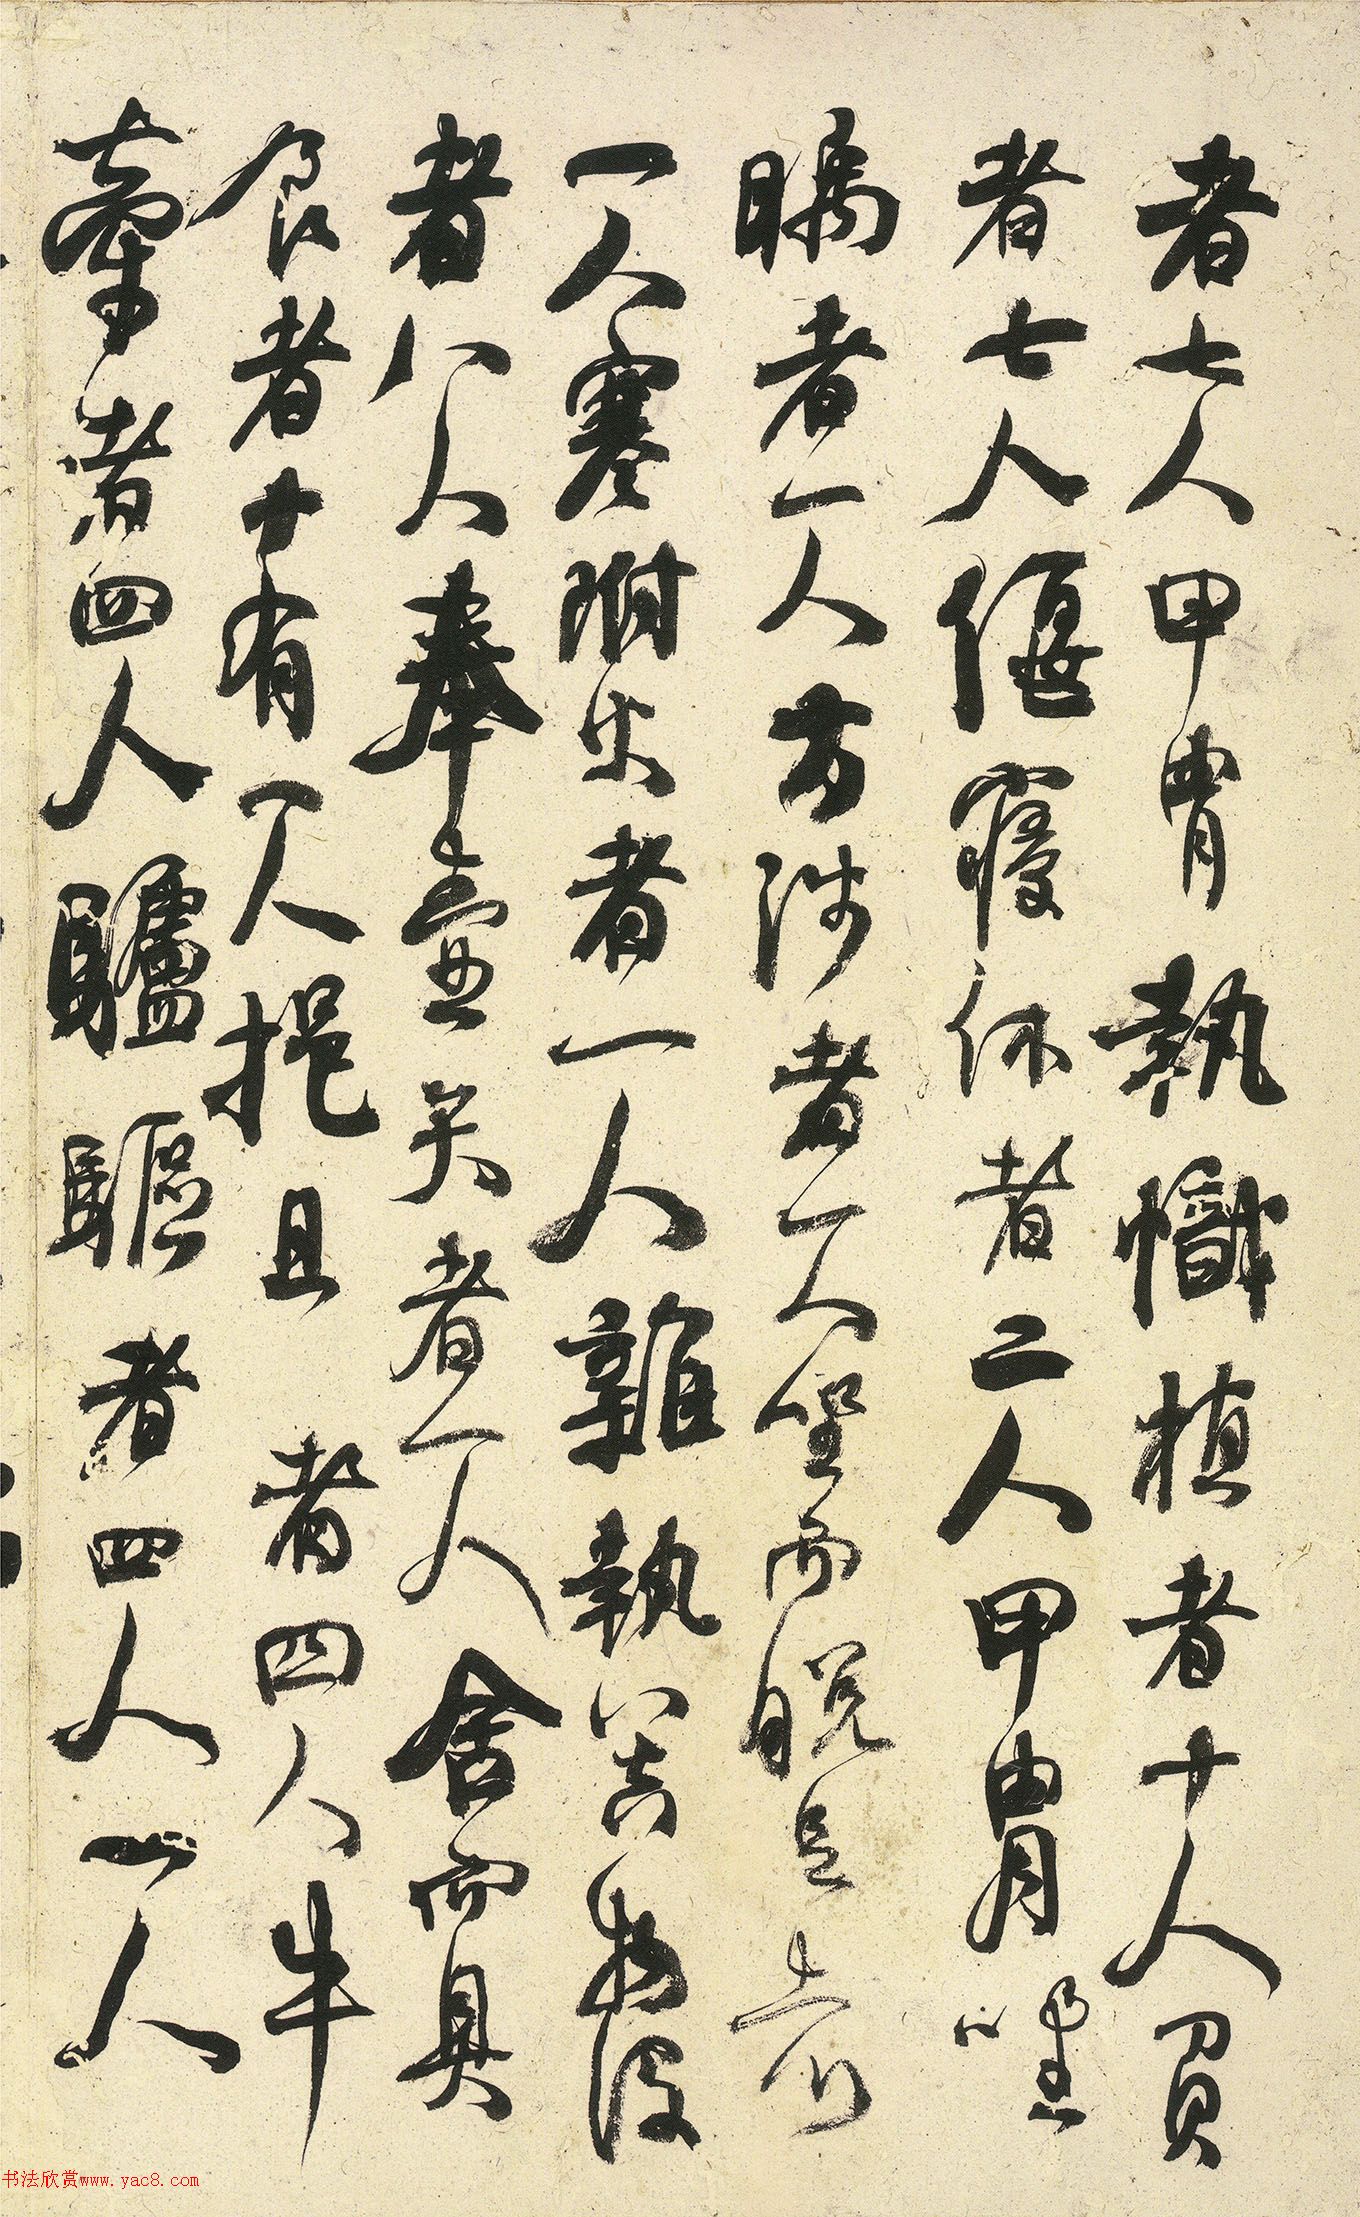 者七人甲冑執幟植者十人負
者七人偃寢休者二人甲冑坐
睡者一人方涉者一人坐而脫足者
一人寒附火者一人雜執器物役
者八人奉壺矢者一人舍而具
食者十有一人挹且者四人牛
牽者四人驢驅者四人一人
书法欣赏www.yac8.com